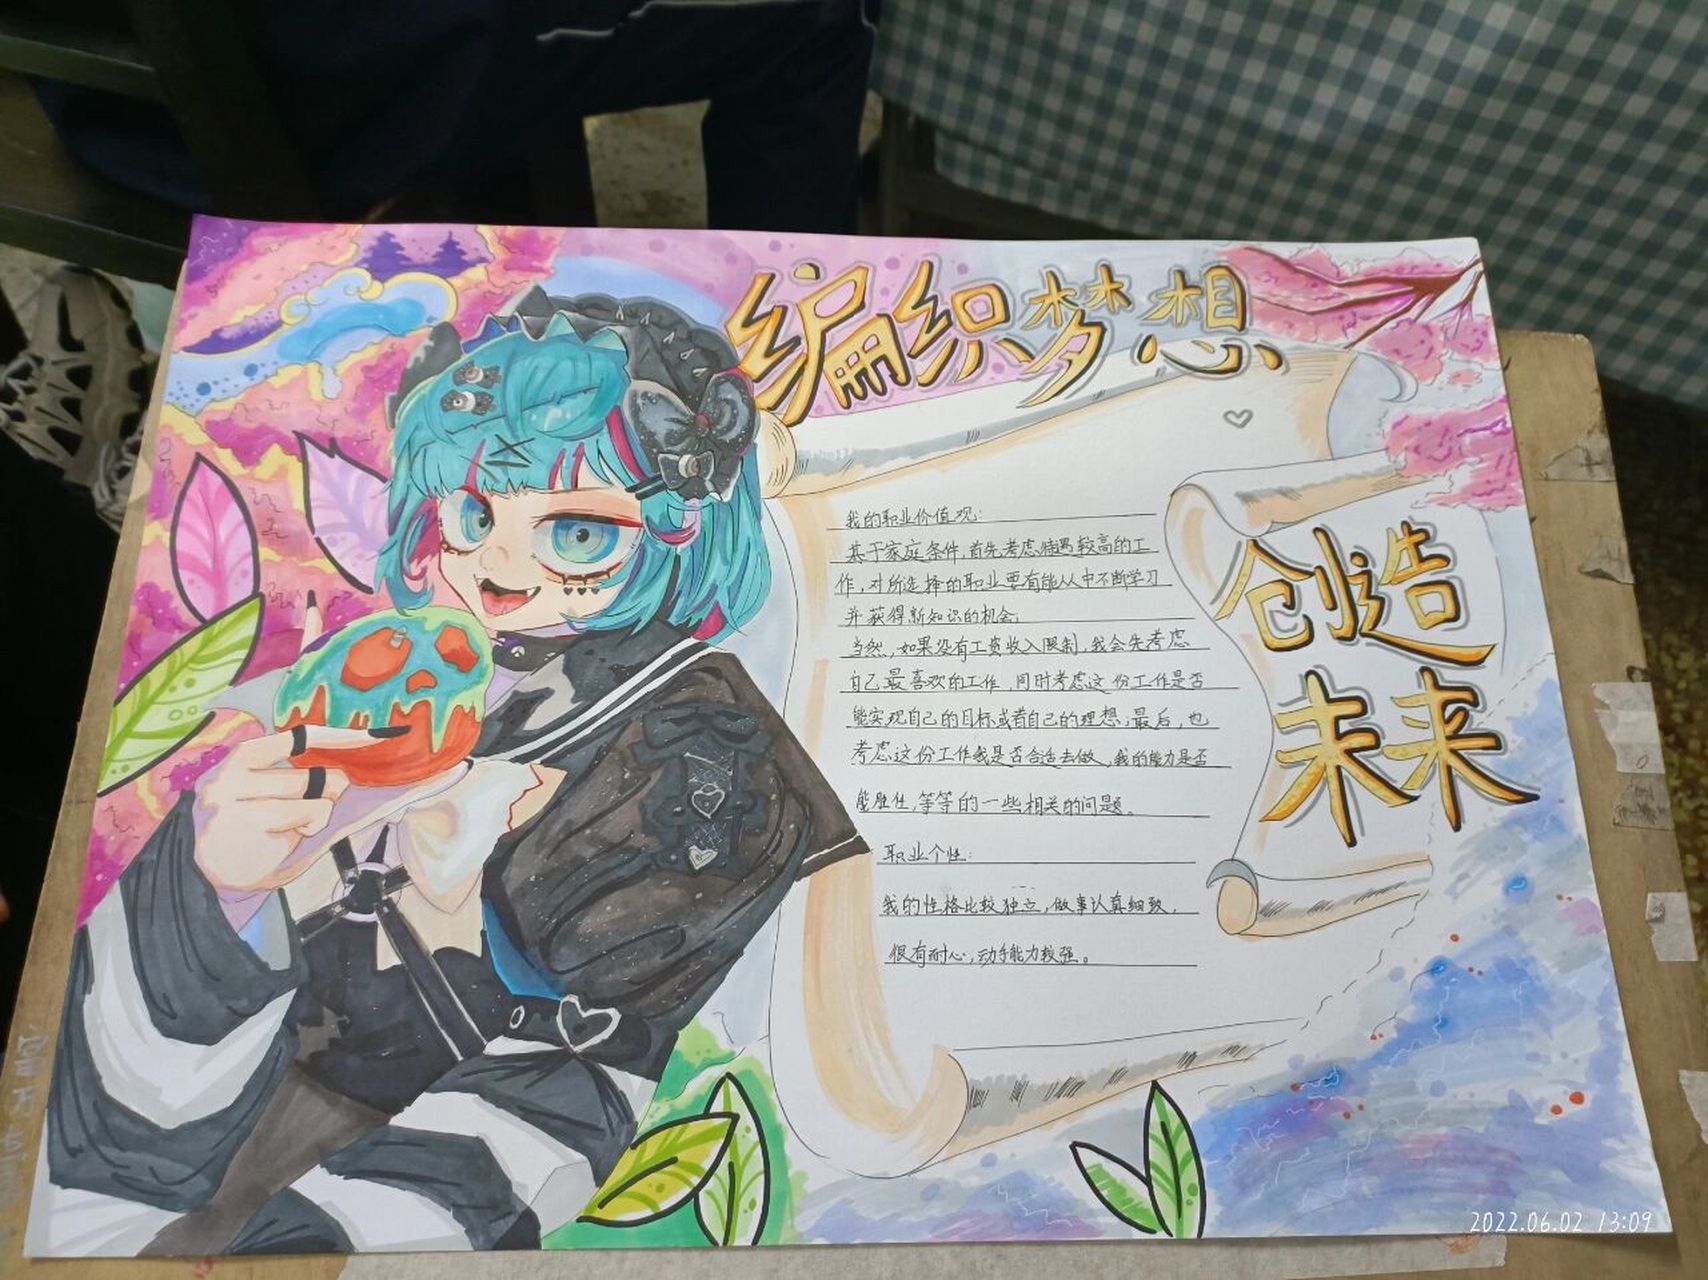 编织梦想
创造
未来
我的职业价值观:
基于家庭条件,首先考虑待遇较高的工
作,对所选择的职业要有能从中不断学习
并获得新知识的机会.
当然,如果没有工资收入限制,我会先考虑
自己最喜欢的工作,同时考虑这份工作是否
能实现自己的目标或者自己的理想;最后,也
考虑这份工作我是否合适去做,我的能力是否
能胜任,等等的一些相关的问题。
职业个性:
我的性格比较独立,做事认真细致,
很有耐心,动手能力较强。
2022.06.02 13:09